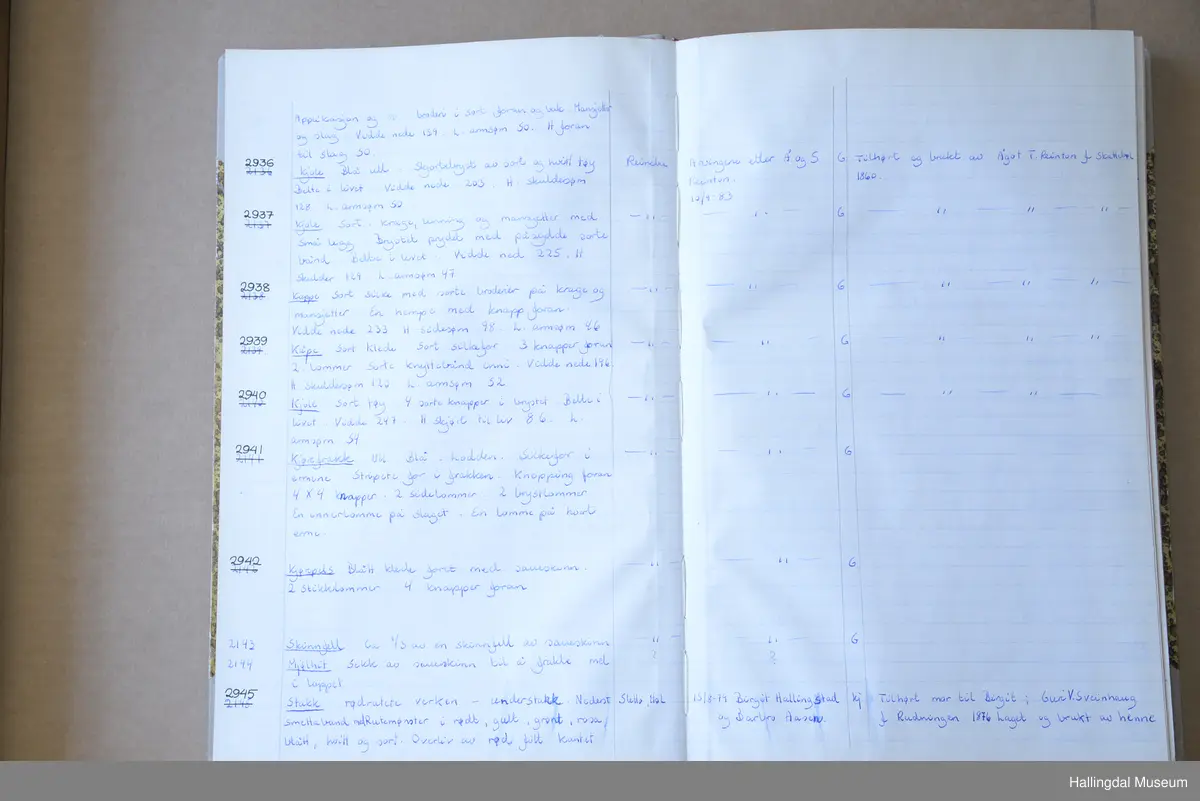 Applikasjon og broderi i sort foran og bak. Mansjetter
og slag Vidde nede 139 L. armsøm 50. H foran
til slag 50.
2936 Kjole Blå ull. Skjortebryst av sorte og hvitt tøy Reinton Arvingene etter Å og S G Tilhørt og brukt av Ågot T. Reinton f. Skallsl
2136 Belte i livet. Vidde nede 203. H. skuldesøm Reinton. 1860.
128 L. armsøm 50 10/9-83
2937 Kjole Sort. Krage, linning og mansjetter med — " — — " — G — " " "
2137 små legg Brystet prydet med påsydde sorte
bånd Belte i livet. Vidde ned 225. H
skulder 129 L. armsøm 47
2938 Kåpe Sort silke med sorte broderier på krage og — " — — " — G — " " "
2138 mansjetter En hempe med knapp foran.
Vidde nede 233 H sidesøm 98. L. armsøm 46
2939 Kåpe Sort klede Sort silkefor 3 knapper foran — " — — " — G — " " "
2139 2 lommer Sorte knyttebånd inni. Vidde nede 196
H skuldesøm 120 L. armsøm 52
2940 Kjole Sort tøy 4 sorte knapper i brystet Belte i — " — — " — G — " "
2140 livet. Vidde 247. H skjørt til liv 86. L.
armsøm 54
2941 Kjørefrakk Ull Blå. Lodden. Silkefor i — " — — " — G
2141 ermene Stripete for i frakken. Knapping foran
4 X 4 knapper. 2 sidelommer 2 brystlommer
En innerlomme på slaget. En lomme på hvert
erme.
2942 Kjørepels Blått klede foret med saueskinn. — " — — " — G
2142 2 stikklommer 4 knapper foran
2143 Skinnfell Ca 1/3 av en skinnfell av saueskinn — " — — " — G
2144 Mjølhit Sekk av saueskinn til å frakte mel ? ?
i loppet
2945 Stakk rødrutete verken – understakk. Nederst Sletto, Ål 15/8-79 Birgit Hallingstad Kj Tilhørt mor til Birgit; Guri V. Sveinhaug
2145 smettaband m/Rutemønster i rødt, gult, grønt, rosa, og Barbro Aasen. f. Rudningen 1876 Laget og brukt av henne
blått, hvitt og sort. Overliv av rød, filt kantet
Hallingdal Museum